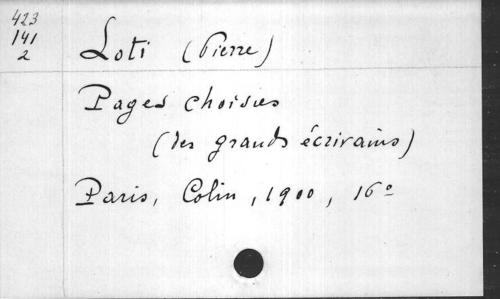 423
141
2
Loti (Pierre)
Pages choisies
(des grands écrivains)
Paris, Colin, 1900, 16º